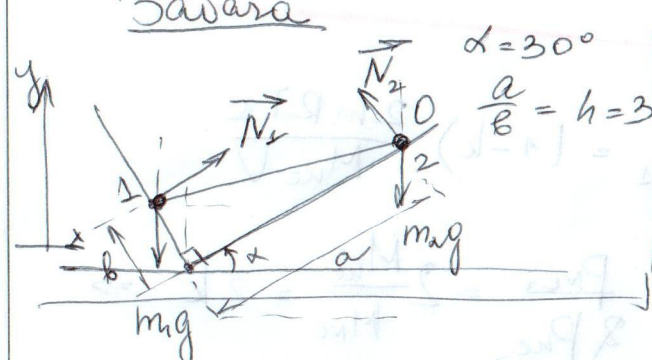 Задача
α = 30°
a/b = n = 3
y
N₁
N₂
O
1
2
x
b
α
a
m₂g
m₁g